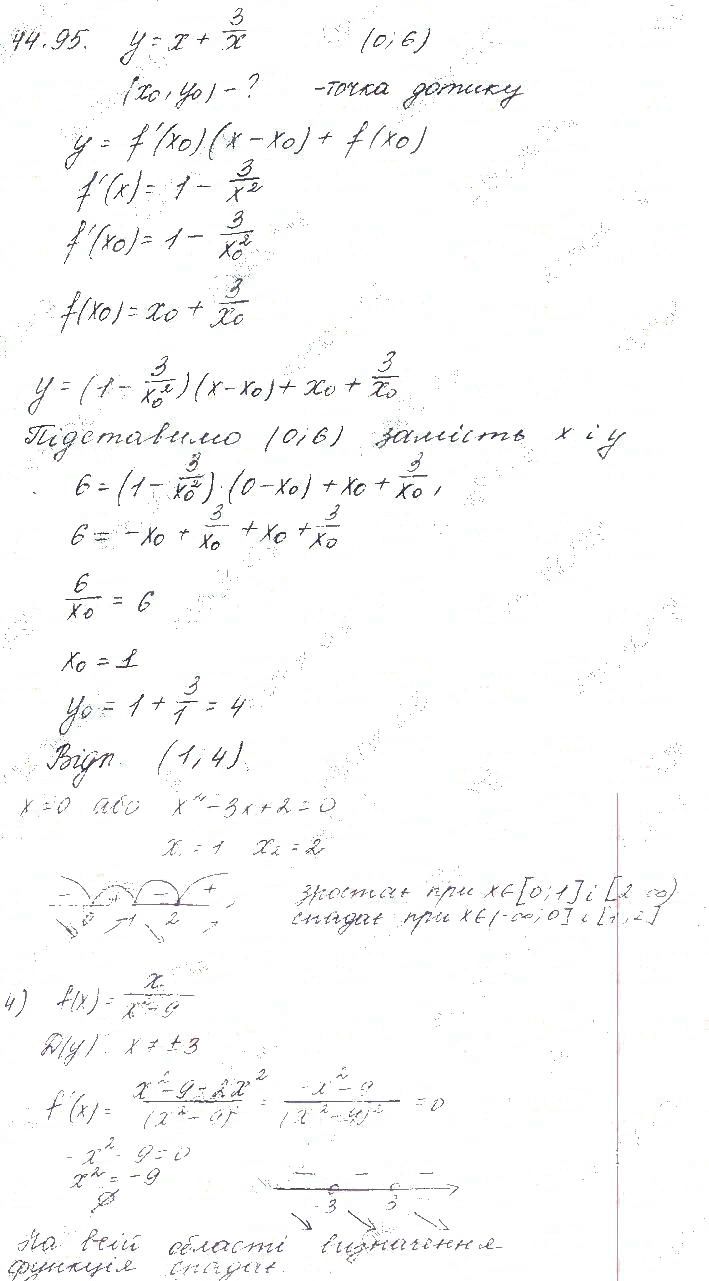 44.95. y = x + 3/x (0; 6)
(x₀, y₀) - ? - точка дотику
y = f'(x₀)(x - x₀) + f(x₀)
f'(x) = 1 - 3/x²
f'(x₀) = 1 - 3/x₀²
f(x₀) = x₀ + 3/x₀
y = (1 - 3/x₀²)(x - x₀) + x₀ + 3/x₀
Підставимо (0; 6) замість x і y
6 = (1 - 3/x₀²) · (0 - x₀) + x₀ + 3/x₀,
6 = -x₀ + 3/x₀ + x₀ + 3/x₀
6/x₀ = 6
x₀ = 1
y₀ = 1 + 3/1 = 4
Відп. (1; 4)
x = 0 або x² - 3x + 2 = 0
x₁ = 1 x₂ = 2
- + - +
0 1 2
зростає при x ∈ [0; 1] і [2 ∞)
спадає при x ∈ (-∞; 0] і [1; 2]
4) f(x) = x/(x² - 9)
D(y) x ≠ ±3
f'(x) = (x² - 9 - 2x²)/(x² - 9)² = (-x² - 9)/(x² - 9)² = 0
-x² - 9 = 0
x² = -9
∅
- - -
-3 3
На всій області визначення
функція спадає.